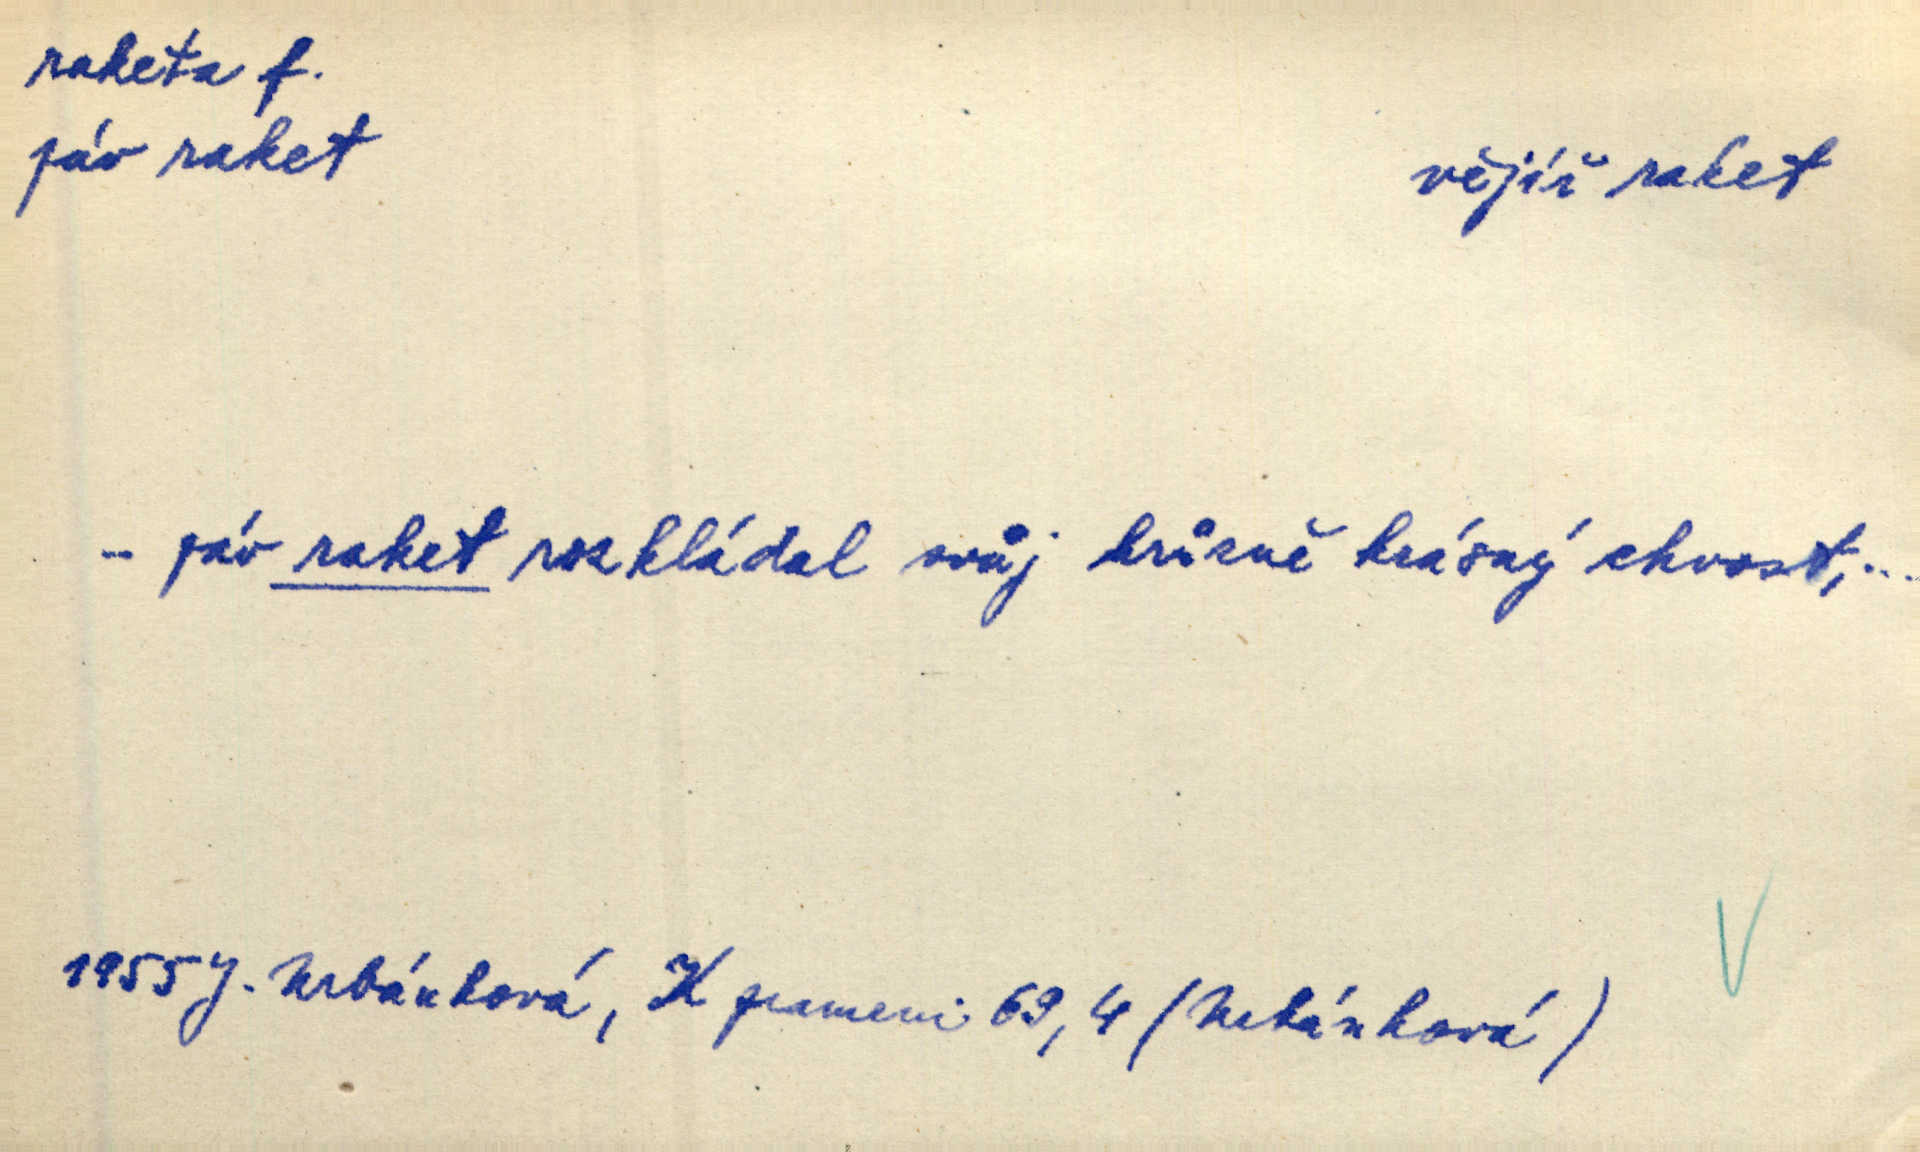 raketa f.
páv raket
vějíř raket
– páv raket rozkládal svůj hrůzně krásný chvost,...
1955 J. Urbánková, K prameni 69, 4 (Urbánková)
V